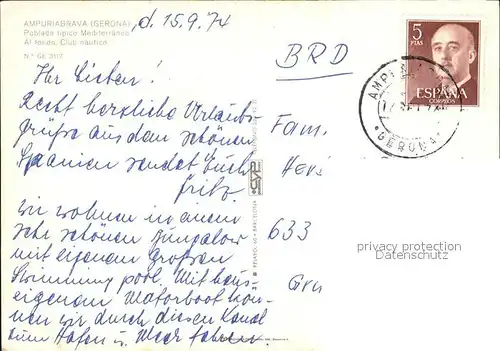 AMPURIABRAVA (GERONA)
Poblado típico Mediterráneo
Al fondo, Club náutico
d. 15.9.74
Ihr Lieben!
Recht herzliche Urlaubs-
grüße aus dem schönen
Spanien sendet Euch
Fritz.
wir wohnen in einem
sehr schönen Bungalow
mit eigenem großen
Swimming pool. Mit
eigenem Motorboot kön-
nen wir durch diesen Kanal
zum Hafen u. Meer fahren.
BRD
Fam.
633
5
PTAS
ESPAÑA
CORREOS
GERONA
privacy protection
Datenschutz